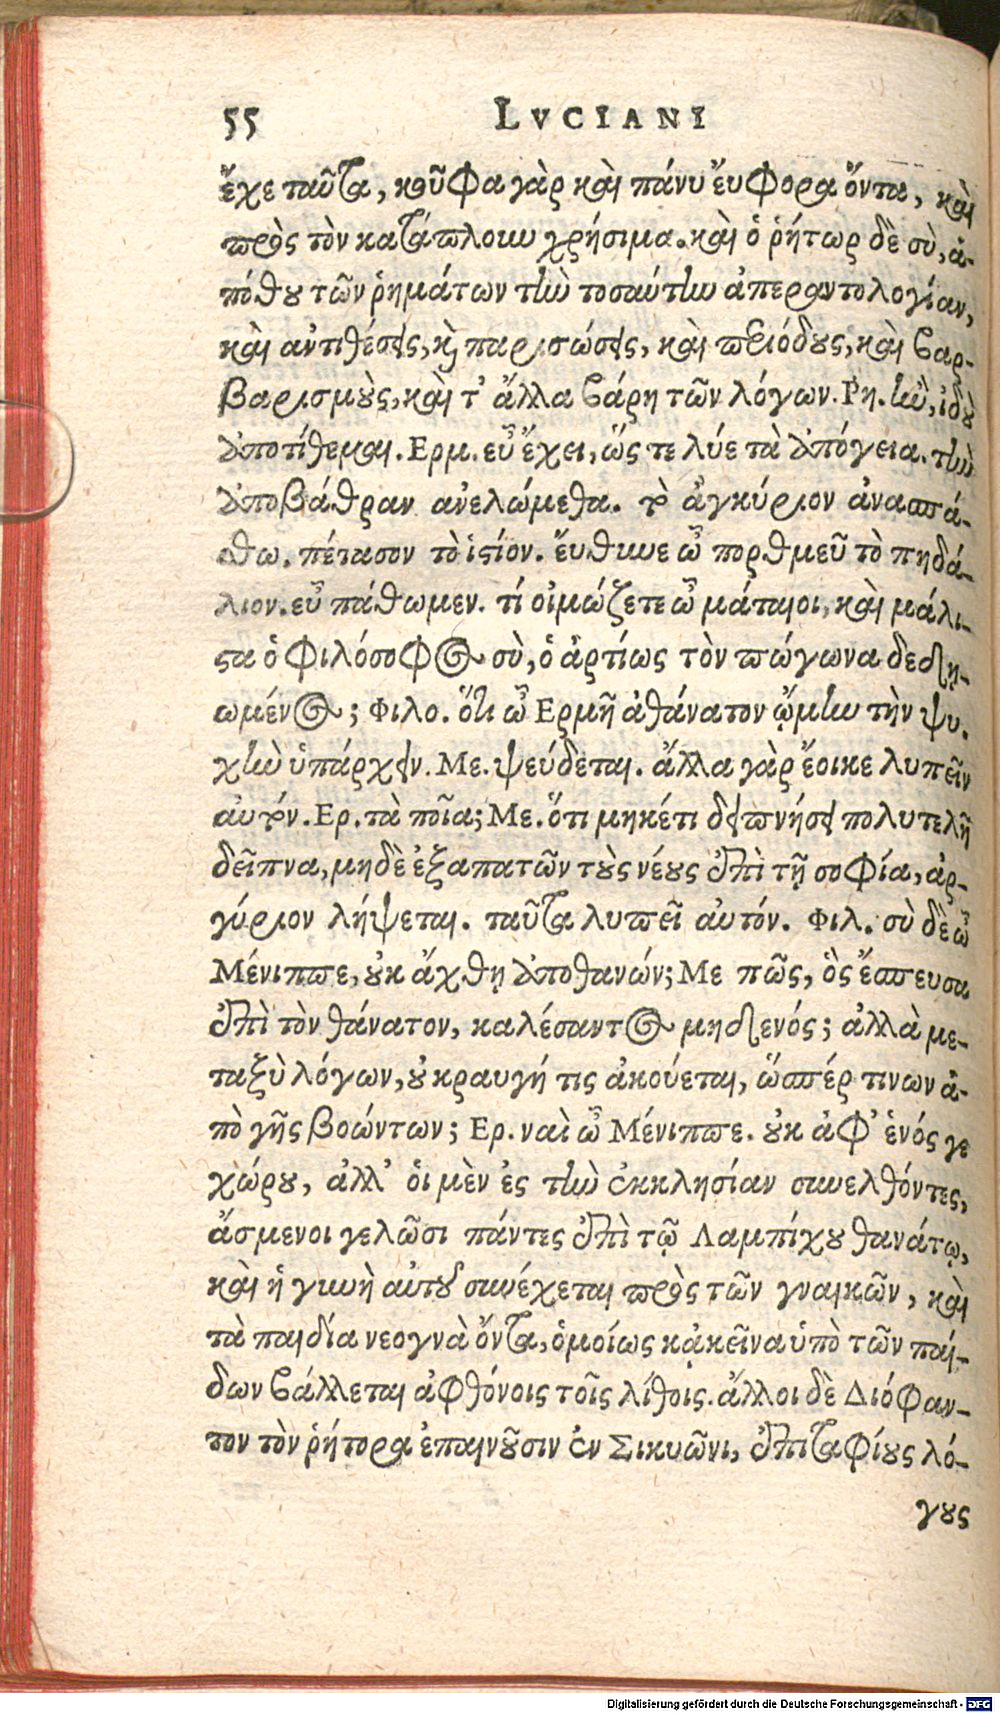 55 LVCIANI
ἔχε ταῦτα, κοῦφα γὰρ καὶ πάνυ ἔυφορα ὄντα, καὶ
πρὸς τὸν κατάπλουν χρήσιμα. καὶ ὁ ῥήτωρ δὲ σὺ, ἀ-
πόθου τῶν ῥημάτων τὴν τοσαύτην ἀπεραντολογίαν,
καὶ ἀντιθέσεις, καὶ παρισώσεις, καὶ περιόδους, καὶ βαρ-
βαρισμοὺς, καὶ τ' ἄλλα βάρη τῶν λόγων. Ρη. ἢν, ἰδοὺ
ἀποτίθεμαι. Ερμ. εὖ ἔχει, ὥς τε λύε τὰ ἀπόγεια. τὴν
ἀποβάθραν ἀνελώμεθα. τὸ ἀγκύριον ἀνασπά-
θω. πέτασον τὸ ἱστίον. ἔυθυνε ὦ πορθμεῦ τὸ πηδά-
λιον. εὖ πάθωμεν. τί οἰμώζετε ὦ μάταιοι, καὶ μάλι-
στα ὁ φιλόσοφος σὺ, ὁ ἀρτίως τὸν πώγωνα δεδῃ-
ωμένος; Φιλο. ὅτι ὦ Ερμῆ ἀθάνατον ᾤμην τὴν ψυ-
χὴν ὑπάρχειν. Με. ψεύδεται. ἄλλα γὰρ ἔοικε λυπεῖν
αὐτόν. Ερ. τὰ ποῖα; Με. ὅτι μηκέτι δειπνήσει πολυτελῆ
δεῖπνα, μηδὲ ἐξαπατῶν τοὺς νέους ἐπὶ τῇ σοφία, ἀρ-
γύριον λήψεται. ταῦτα λυπεῖ αὐτόν. Φιλ. σὺ δὲ ὦ
Μένιππε, οὐκ ἄχθῃ ἀποθανών; Με πῶς, ὃς ἔσπευσα
ἐπὶ τὸν θάνατον, καλέσαντος μηδενός; ἀλλὰ με-
ταξὺ λόγων, οὐ κραυγή τις ἀκούεται, ὥσπέρ τινων ἀ-
πὸ γῆς βοώντων; Ερ. ναὶ ὦ Μένιππε. οὐκ ἀφ' ἑνός γε
χώρου, ἀλλ' ὁι μὲν ἐς τὴν ἐκκλησίαν συνελθόντες,
ἄσμενοι γελῶσι πάντες ἐπὶ τῷ Λαμπίχου θανάτῳ,
καὶ ἡ γυνὴ αὐτοῦ συνέχεται πρὸς τῶν γναικῶν, καὶ
τὰ παιδία νεογνὰ ὄντα, ὁμοίως κᾀκεῖνα ὑπὸ τῶν παί-
δων βάλλεται ἀφθόνοις τοῖς λίθοις. ἄλλοι δὲ Διόφαν-
τον τὸν ῥήτορα ἐπαινοῦσιν ἐν Σικυῶνι, ἐπιταφίους λό-
γους
Digitalisierung gefördert durch die Deutsche Forschungsgemeinschaft - DFG